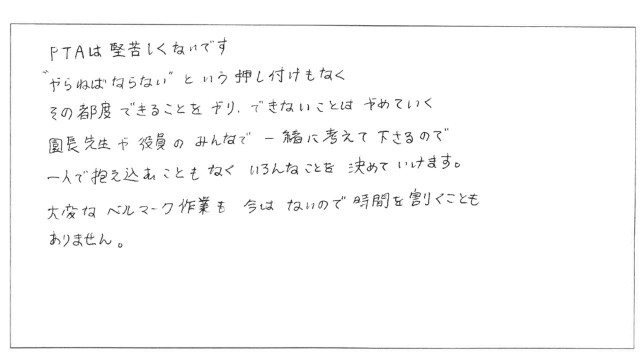 PTAは堅苦しくないです
"やらねばならない"という押し付けもなく
その都度できることをやり、できないことはやめていく
園長先生や役員のみんなで一緒に考えて下さるので
一人で抱え込むこともなくいろんなことを決めていけます。
大変なベルマーク作業も今はないので時間を割くことも
ありません。